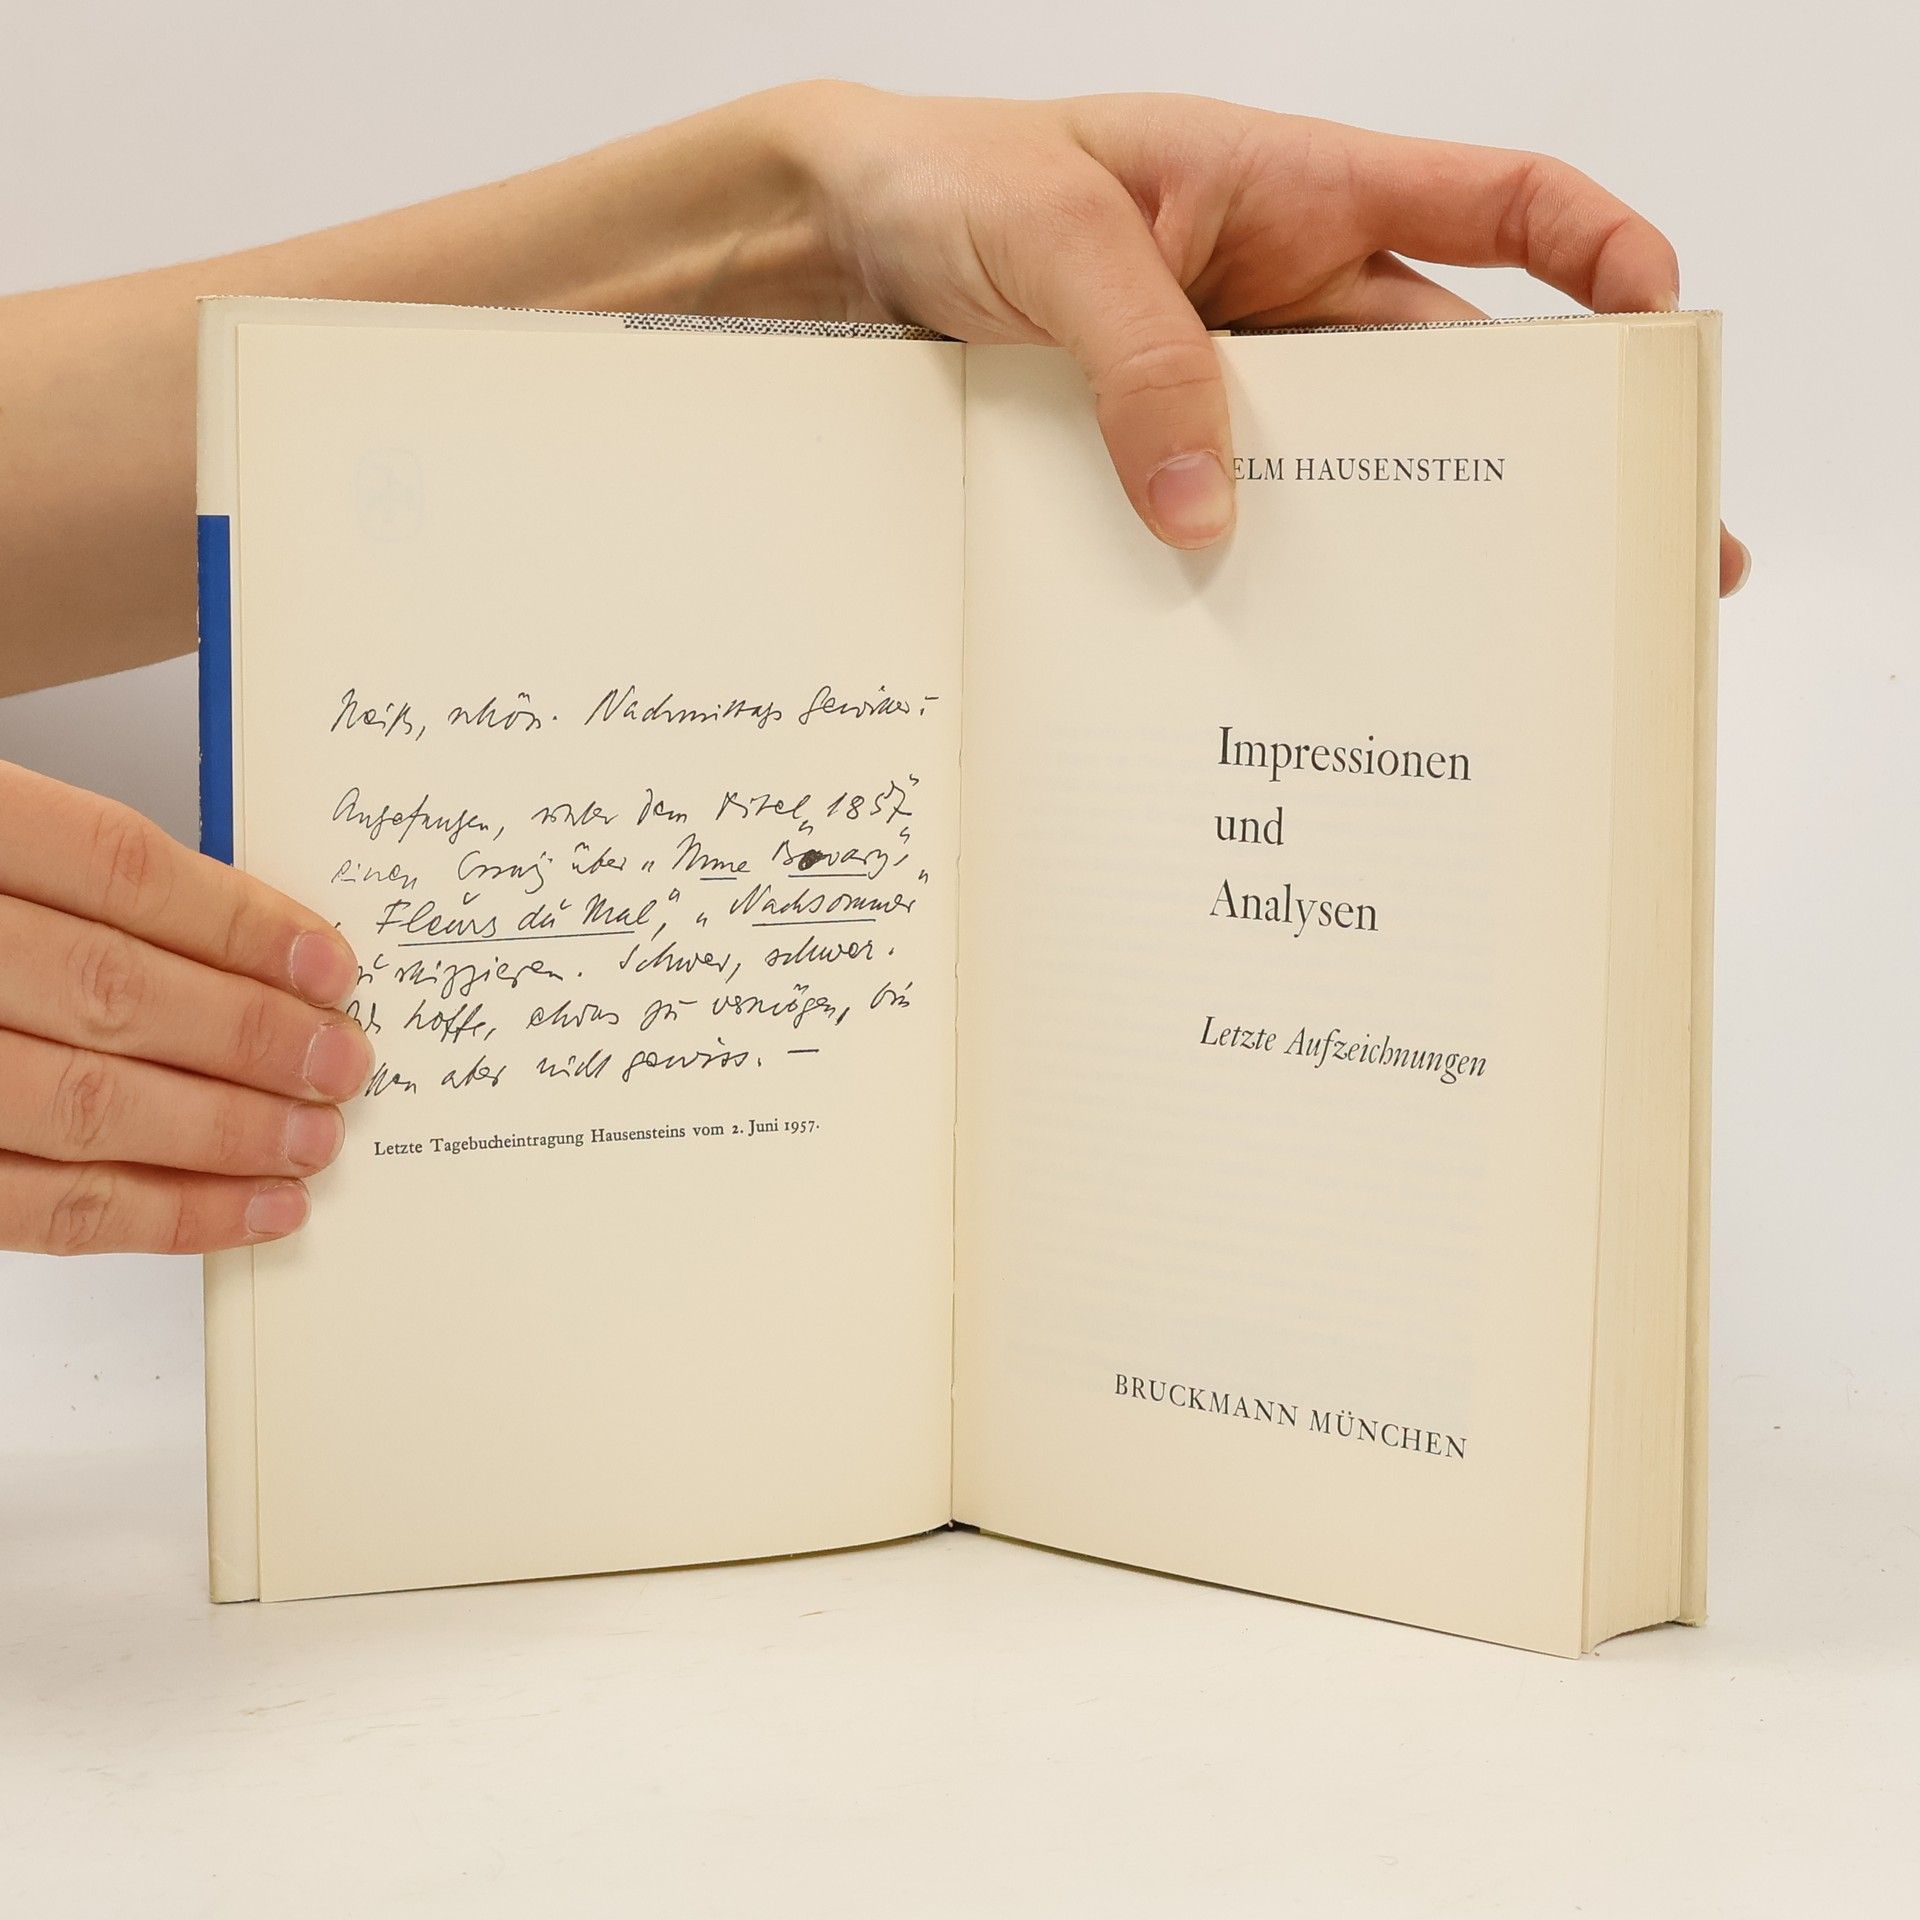 Heiß, schön. Nachmittags Gewitter.
Angefangen, unter dem Titel „1857"
einen Essay über „Mme Bovary",
„Fleurs du Mal", „Nachsommer"
zu skizzieren. Schwer, schwer.
hoffe, etwas zu vermögen, bin
aber nicht gewiss. —
Letzte Tagebucheintragung Hausensteins vom 2. Juni 1957.
ELM HAUSENSTEIN
Impressionen
und
Analysen
Letzte Aufzeichnungen
BRUCKMANN MÜNCHEN